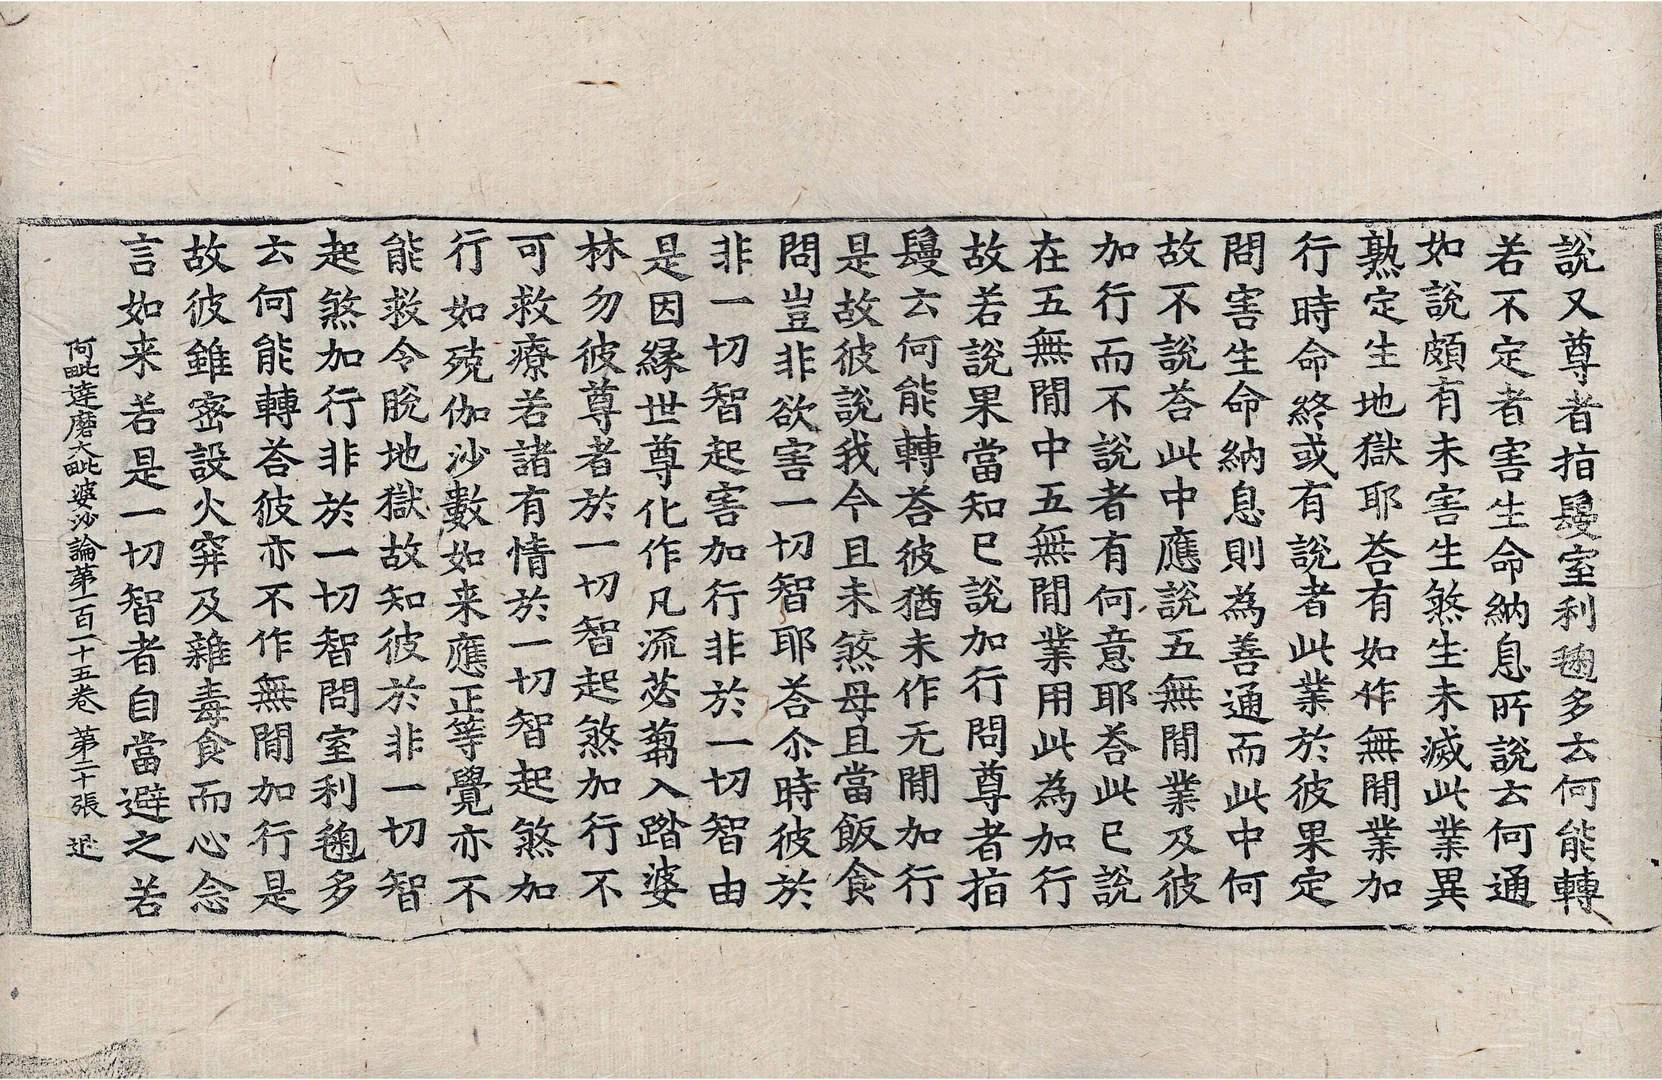 說又尊者指鬘室利毱多去何能轉
若不定者害生命納息所說去何通
如說頗有未害生煞生未滅此業異
熟定生地獄耶荅有如作無閒業加
行時命終或有說者此業於彼果定
問害生命納息則為善通而此中何
故不說荅此中應說五無閒業及彼
加行而不說者有何意耶荅此已說
在五無閒中五無閒業用此為加行
故若說果當知已說加行問尊者指
鬘去何能轉荅彼猶未作无閒加行
是故彼說我今且未煞母且當飯食
問豈非欲害一切智耶荅尒時彼於
非一切智起害加行非於一切智由
是因縁世尊化作凡流苾蒭入踏婆
林勿彼尊者於一切智起煞加行不
可救療若諸有情於一切智起煞加
行如殑伽沙數如来應正等覺亦不
能救令脫地獄故知彼於非一切智
起煞加行非於一切智問室利毱多
去何能轉荅彼亦不作無閒加行是
故彼雖密設火穽及雜毒食而心念
言如来若是一切智者自當避之若
阿毗達磨大毗婆沙論第一百一十五卷 第二十張 逆